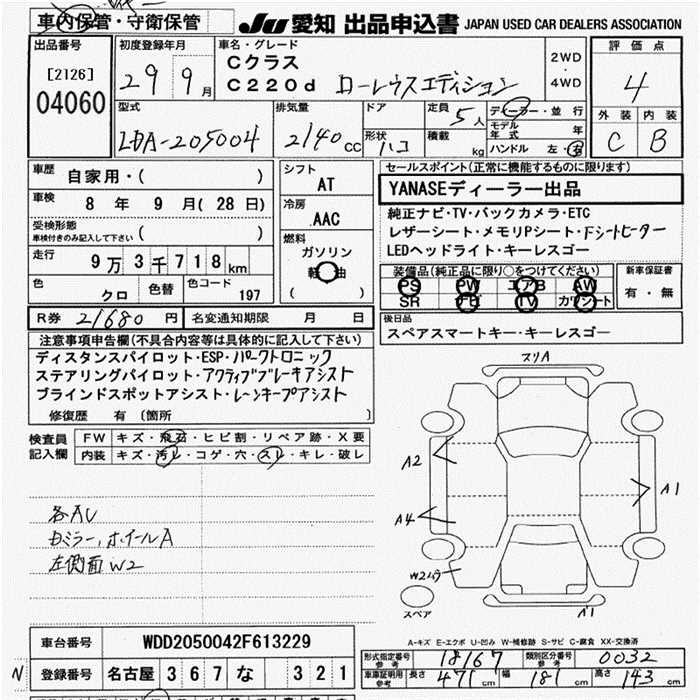 車内保管・守衛保管
JU 愛知 出品申込書 JAPAN USED CAR DEALERS ASSOCIATION
出品番号
[2126]
04060
初度登録年月
29 9月
車名・グレード
Cクラス
C220d ローレウスエディション
2WD
・
4WD
評価点
4
外装 内装
C B
型式
LDA-205004
排気量
2140 CC
ドア
形状 ハコ
定員 5人
積載 kg
ディーラー・並行
モデル年式 年
ハンドル 左・右
車歴 自家用・( )
車検 8年 9月(28日)
受検形態
車検付きのみ記入して下さい ( )
走行 9万3千718km
色 クロ 色替 色コード 197
シフト
AT
冷房
AAC
燃料
ガソリン
軽油
( )
セールスポイント(正常に機能するものに限ります)
YANASEディーラー出品
純正ナビ・TV・バックカメラ・ETC
レザーシート・メモリPシート・Fシートヒーター
LEDヘッドライト・キーレスゴー
装備品(純正品に限り○をつけてください)
PS PW エアB AW
SR ナビ TV カワシート
新車保証書
有・無
R券 21680円 名変通知期限 月 日
後日品
スペアスマートキー・キーレスゴー
注意事項申告欄(不具合内容等は具体的に記入して下さい)
ディスタンスパイロット・ESP・パークトロニック
ステアリングパイロット・アクティブブレーキアシスト
ブラインドスポットアシスト・レーンキープアシスト
修復歴 有 〔箇所 〕
検査員記入欄
FW キズ・飛石・ヒビ割・リペア跡・X要
内装 キズ・汚レ・コゲ・穴・スレ・キレ・破レ
各AU
カミラー、ホイールA
左側面W2
スリA
A2
A1
A4
W2ムラ
A1
スペア
A-キズ E-エクボ U-凹み W-補修跡 S-サビ C-腐食 XX-交換済
車台番号 WDD2050042F613229
N 登録番号 名古屋 3 6 7 な 3 2 1
形式指定番号 参考 18167 類別区分番号 参考 0032
車庫証明用 参考 長さ 471cm 幅 181cm 高さ 143cm